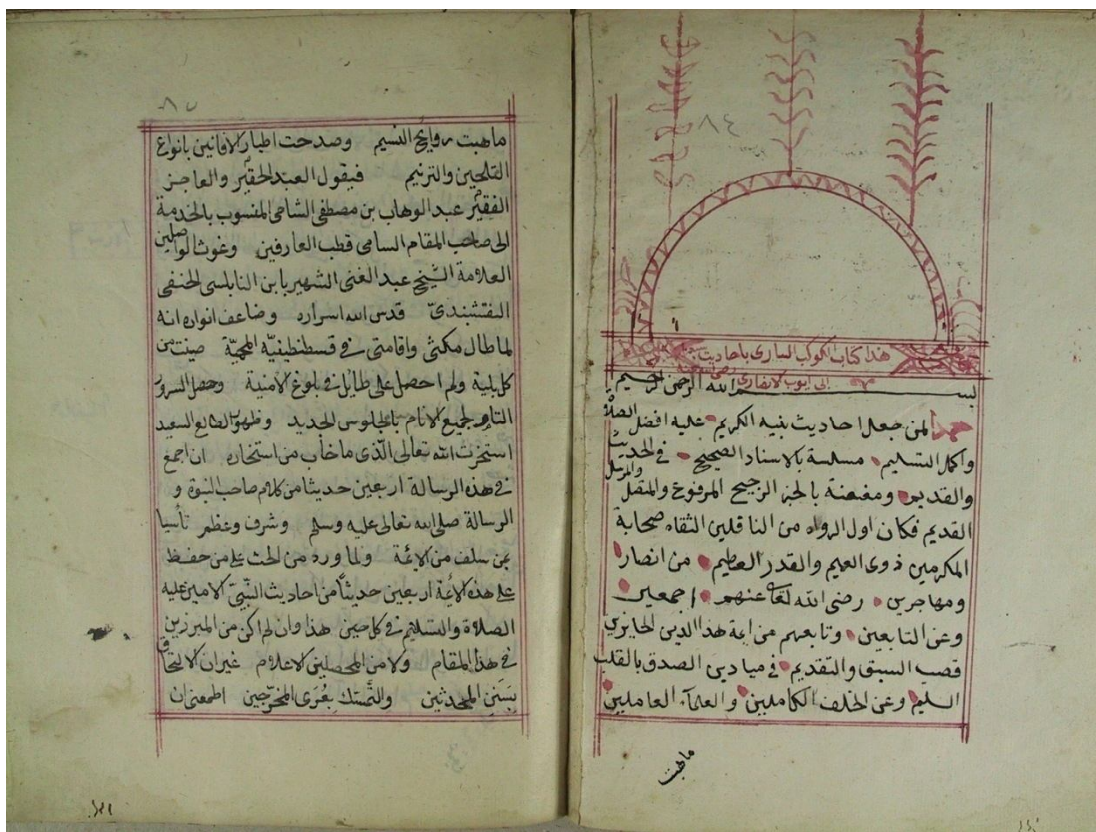 ٨٤
هذا كتاب الكوكب الساري باحاديث
ابى ايوب الانصاري رضى الله عنه
بسم الله الرحمن الرحيم
حمدا لمن جعل احاديث نبيه الكريم عليه افضل الصلاة
واكمل التسليم مسلسة بالاسناد الصحيح في الحديث
والقديم ومغنعنة بالخبر الرجيح المرفوع والمتصل والمرسل
القديم فكان اول الرواه من الناقلين الثقاه صحابة
المكرمين ذوى العميم والقدر العظيم من انصار
ومهاجرين رضى الله تعا عنهم اجمعين
وعن التابعين وتابعهم من ايمة هذا الدين الحايزين
قصب السبق والتقديم في ميادين الصدق بالقلب
السليم وعن الخلف الكاملين والعلمآء العاملين
ماهبت
٨٥
ماهبت روايح النسيم وصدحت اطيار الافانين بانواع
التلحين والترنيم فيقول العبد الحقير والعاجز
الفقير عبد الوهاب بن مصطفى الشامى المنسوب بالخدمة
الى صاحب المقام السامى قطب العارفين وغوث الواصلين
العلامة الشيخ عبد الغنى الشهير بابن النابلسى الحنفى
النقشبندىّ قدس الله اسراره وضاعف انواره انه
لما طال مكثى واقامتى في قسطنطينيه المحميّة صينت من
كل بلية ولم احصل على طايل في بلوغ الامنية وحصل السرور
التام لجميع الانام بالجلوس الجديد وظهور الطالع السعيد
استخرت الله تعالى الّذى ما خاب من استخاره ان اجمع
في هذه الرسالة اربعين حديثا من كلام صاحب النبوة و
الرسالة صلى الله تعالى عليه وسلم وشرف وعظم تأسيا
بمن سلف من الائمة ولما ورد من الحث على من حفظ
على هذه الامة اربعين حديثًا من احاديث النبّى الامين عليه
الصلاة والسلام في كل حين هذا وان لم اكن من المبرزين
في هذا المقام ولا من المحصلين الاعلام غير ان الالتحاق
بسَنن المحدثين والتمسّك بعُرَى المخرّجين اطمعنى ان